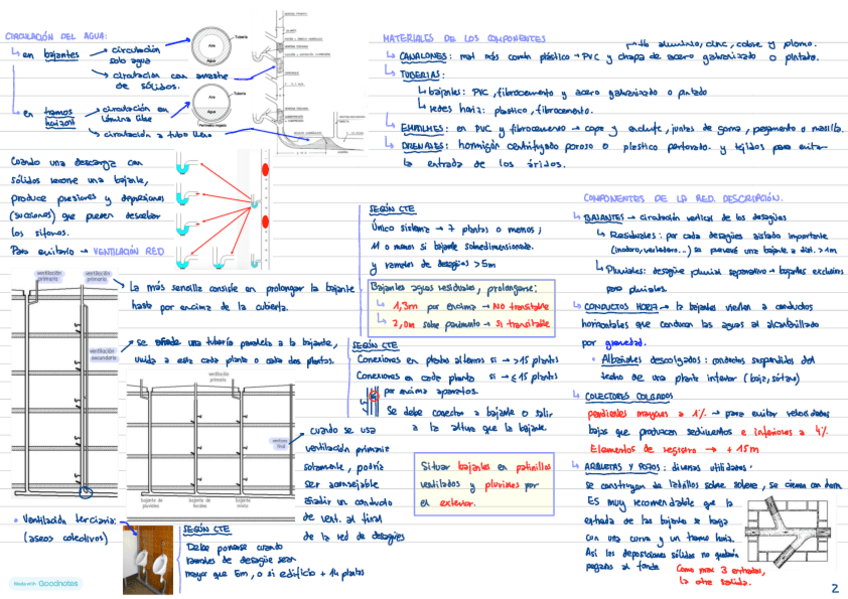 CIRCULACIÓN DEL AGUA:
↳ en bajantes → circulación solo agua
→ circulación con arrastre de sólidos.
↳ en tramos horizont → circulación en lámina libre
→ circulación a tubo lleno
Aire
Agua
Tubería
Aire
Agua
Tubería
Cuando una descarga con
sólidos recorre una bajante,
produce presiones y depresiones
(succiones) que pueden descebar
los sifones.
Para evitarlo → VENTILACIÓN RED
ventilación primaria
ventilación primaria
ventilación secundaria
La más sencilla consiste en prolongar la bajante
hasta por encima de la cubierta.
→ se añade una tubería paralela a la bajante,
unida a esta cada planta o cada dos plantas.
ventilación primaria
bajante de pluviales
bajante de fecales
bajante mixta
cuando se usa
ventilación primaria
solamente, podría
ser aconsejable
añadir un conducto
de vent. al final
de la red de desagües
• Ventilación terciaria:
(aseos colectivos)
SEGÚN CTE
Debe ponerse cuando
ramales de desagüe sean
mayor que 5m, o si edificio + 14 plantas
SEGÚN CTE
Único sistema → 7 plantas o menos,
11 o menos si bajante sobredimensionada.
y ramales de desagües >5m
Bajantes aguas residuales, prolongarse:
↳ 1,3m por encima → NO transitable
↳ 2,0m sobre pavimento → SI transitable
SEGÚN CTE
Conexiones en planta alternas si → >15 plantas
Conexiones en cada planta si → ≤15 plantas
↳ por encima aparatos.
Se debe conectar a bajante o salir
a la altura que la bajante.
Situar bajantes en patinillos
ventilados y pluviales por
el exterior.
MATERIALES DE LOS COMPONENTES
→ Tb aluminio, cinc, cobre y plomo.
↳ CANALONES: mat más común plástico → PVC y chapa de acero galvanizado o pintado.
↳ TUBERIAS:
↳ bajantes: PVC, fibrocemento y acero galvanizado o pintado
↳ redes horiz: plástico, fibrocemento.
↳ EMPALMES: en PVC y fibrocemento → copa y enchufe, juntas de goma, pegamento o masilla.
↳ DRENAJES: hormigón centrifugado poroso o plástico perforado. y tejidos para evitar
la entrada de los áridos.
COMPONENTES DE LA RED. DESCRIPCIÓN.
↳ BAJANTES → circulación vertical de los desagües
↳ Residuales: por cada desagües aislado importante
(inodoro, vertedero...) se preveré una bajante a dist. >1m
↳ Pluviales: desagüe pluvial separativo → bajantes exclusivas
para pluviales.
↳ CONDUCTOS HORIZ → la bajantes vierten a conductos
horizontales que conducen las aguas al alcantarillado
por gravedad.
• Albañales descolgados: conductos suspendidos del
techo de una planta inferior (baja, sótano)
↳ COLECTORES COLGADOS
pendientes mayores a 1% → para evitar velocidades
bajas que produzcan sedimentos e inferiores a 4%
Elementos de registro → + 15m
↳ ARQUETAS Y POZOS: diversas utilidades.
se construyen de ladrillos sobre solera, se cierra con
Es muy recomendable que la
entrada de las bajante se haga
con una curva y un tramo horiz.
Así las deposiciones sólidas no quedarán
pegadas al fondo
Como max 3 entradas,
la otra salida.
Made with Goodnotes
2